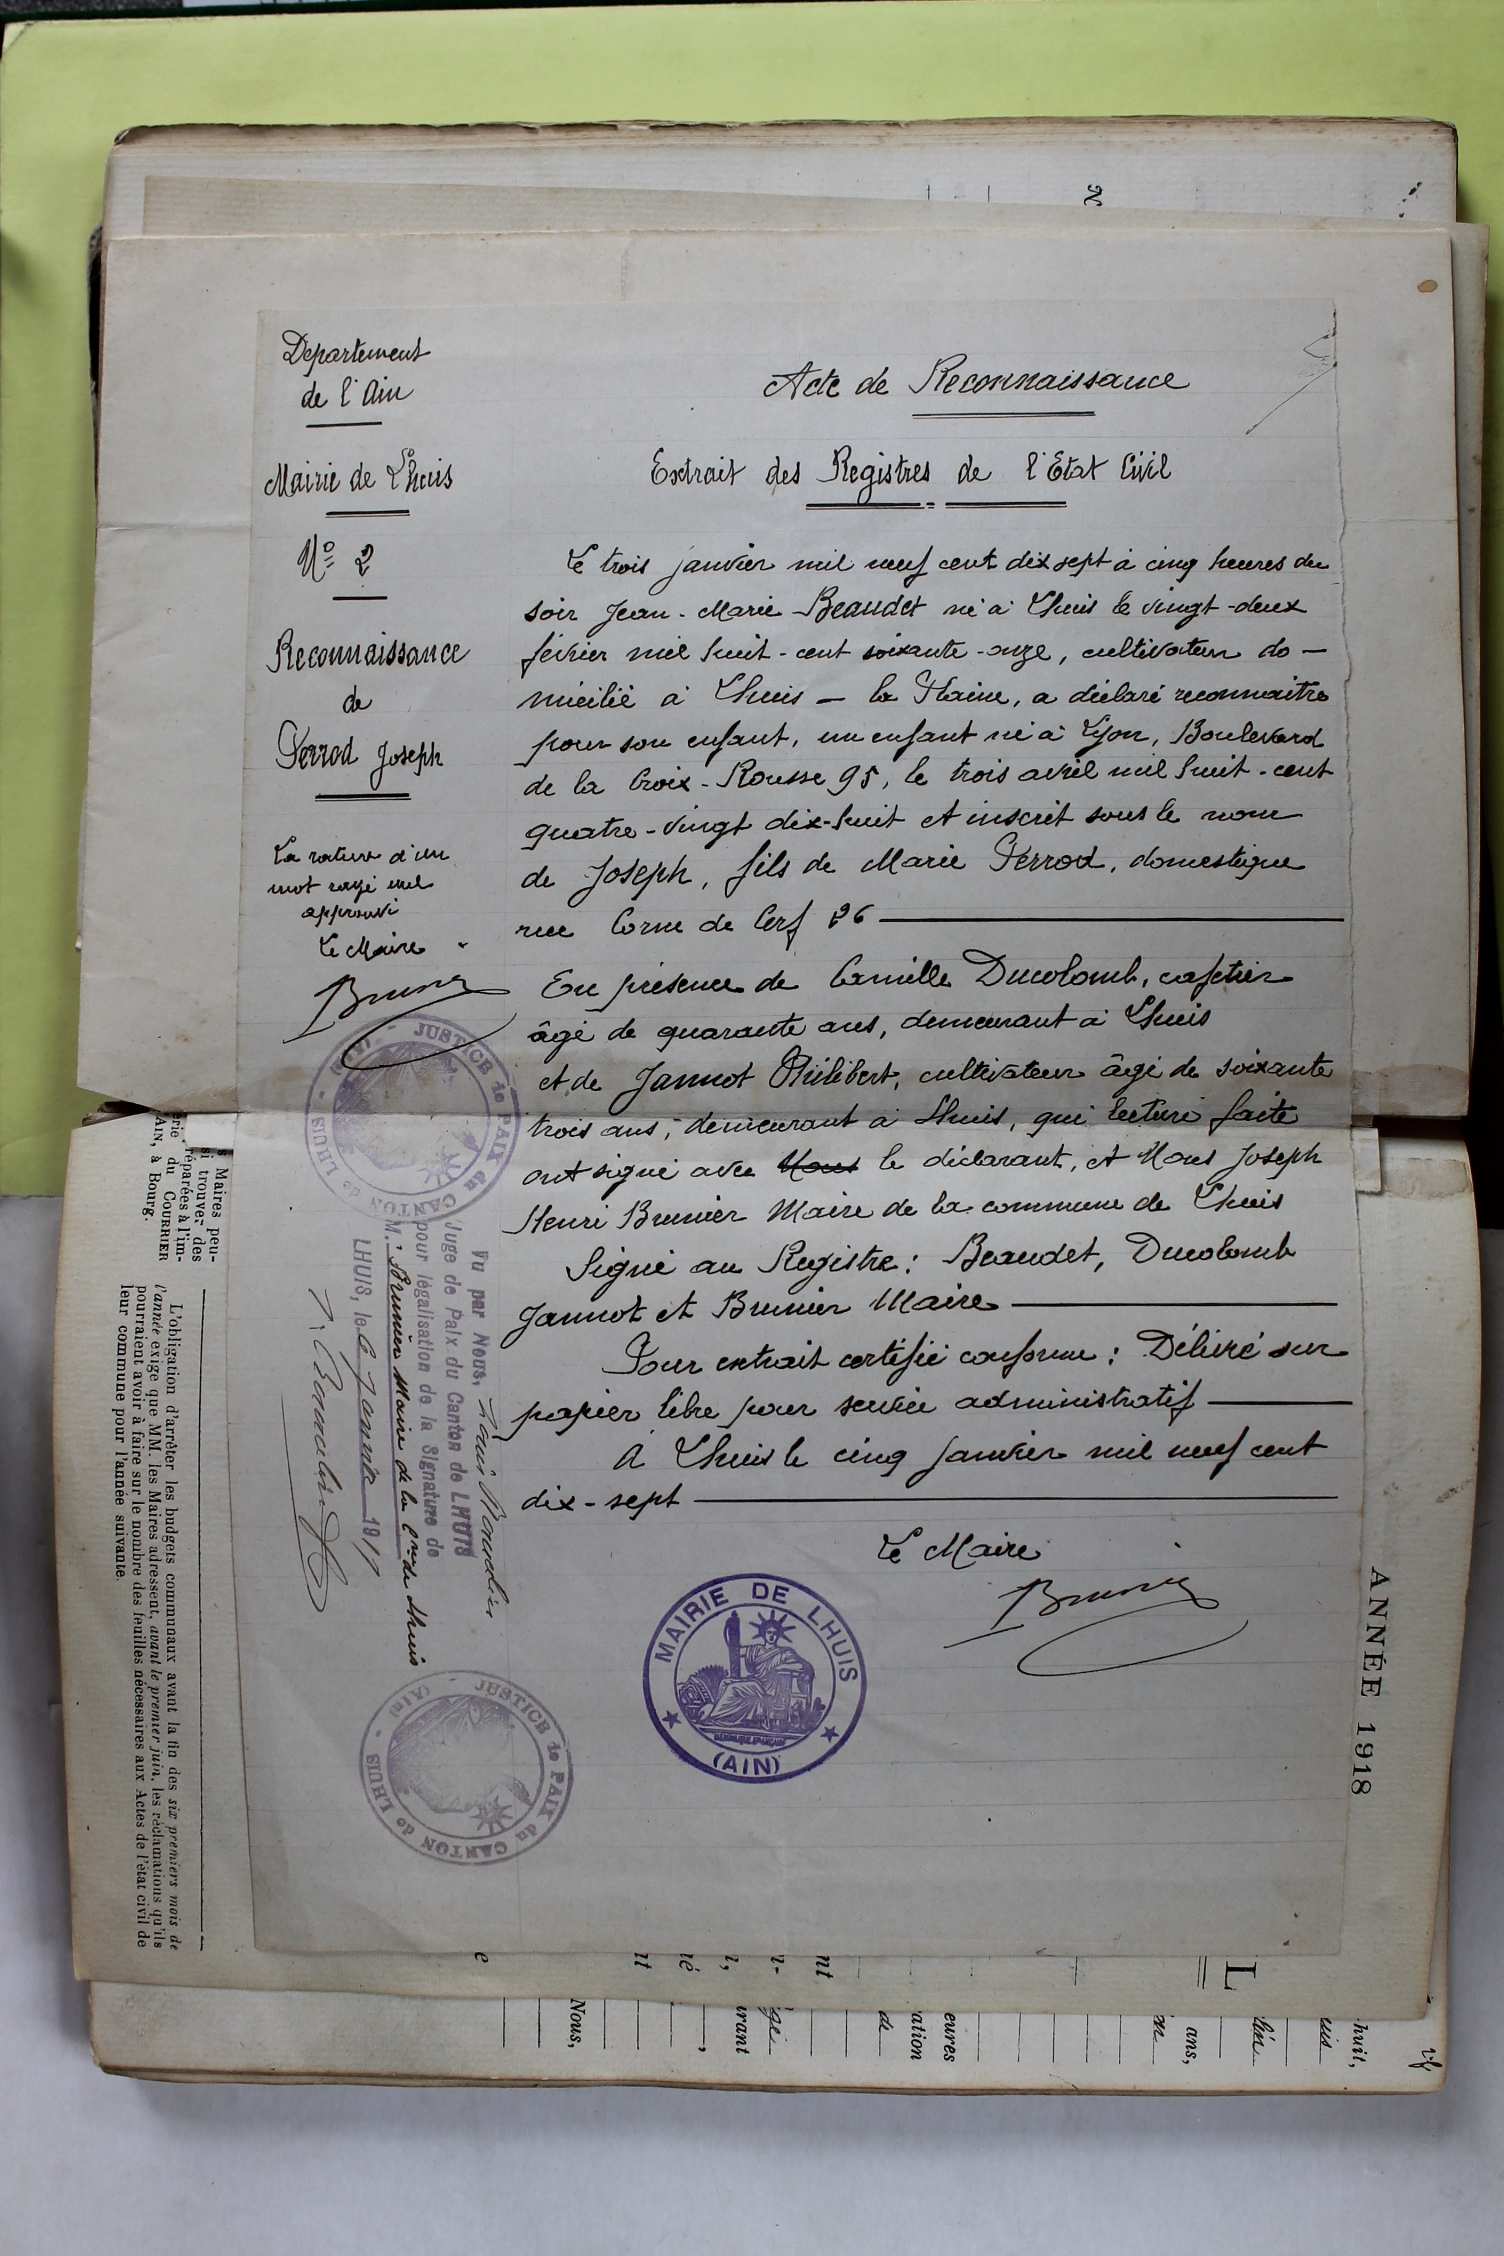 Departement
de l'Ain
Mairie de Lhuis
N° 2
Reconnaissance
de
Perrod Joseph
La rature d'un
mot rayé nul
approuvé
Le Maire
Brunier
Acte de Reconnaissance
Extrait des Registres de l'Etat Civil
Le trois janvier mil neuf cent dix sept à cinq heures du
soir Jean-Marie Beaudet né à Lhuis le vingt-deux
février mil huit-cent soixante-onze, cultivateur do-
micilié à Lhuis - la Plaine, a déclaré reconnaitre
pour son enfant, un enfant né à Lyon, Boulevard
de la Croix-Rousse 95, le trois avril mil huit-cent
quatre-vingt dix-huit et inscrit sous le nom
de Joseph, fils de Marie Perrod, domestique
rue Corne de Cerf 26
En présence de Camille Ducolomb, cafetier
âgé de quarante ans, demeurant à Lhuis
et de Jannot Philibert, cultivateur âgé de soixante
trois ans, demeurant à Lhuis, qui lecture faite
ont signé avec Nous le déclarant, et Nous Joseph
Henri Brunier Maire de la commune de Lhuis
Signé au Registre : Beaudet, Ducolomb
Jannot et Brunier Maire
Pour extrait certifié conforme : Délivré sur
papier libre pour service administratif
A Lhuis le cinq janvier mil neuf cent
dix-sept
Le Maire
Brunier
MAIRIE DE LHUIS
(AIN)
JUSTICE de PAIX du CANTON de LHUIS (Ain)
Vu par Nous, Louis
Juge de Paix du Canton de LHUIS
pour légalisation de la Signature de
M. Brunier Maire de la Cne de Lhuis
LHUIS, le 6 Janvier 1917
JUSTICE de PAIX du CANTON de LHUIS (Ain)
ANNÉE 1918
s Maires peu-
si trouver des
réparées à l'im-
rie du COURRIER
AIN, à Bourg.
L'obligation d'arrêter les budgets communaux avant la fin des six premiers mois de
l'année exige que MM. les Maires adressent, avant le premier juin, les réclamations qu'ils
pourraient avoir à faire sur le nombre des feuilles nécessaires aux Actes de l'état civil de
leur commune pour l'année suivante.
L
huit,
uis
ans,
eures
ation
de
urant
Nous,
nt